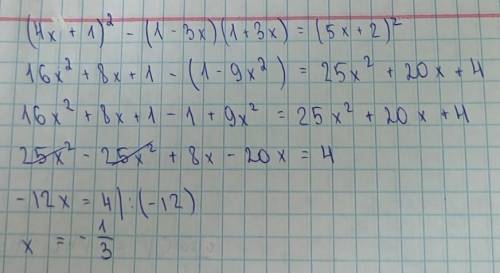 (4x + 1)² - (1 - 3x)(1 + 3x) = (5x + 2)²
16x² + 8x + 1 - (1 - 9x²) = 25x² + 20x + 4
16x² + 8x + 1 - 1 + 9x² = 25x² + 20x + 4
25x² - 25x² + 8x - 20x = 4
-12x = 4 | : (-12)
x = - 1/3